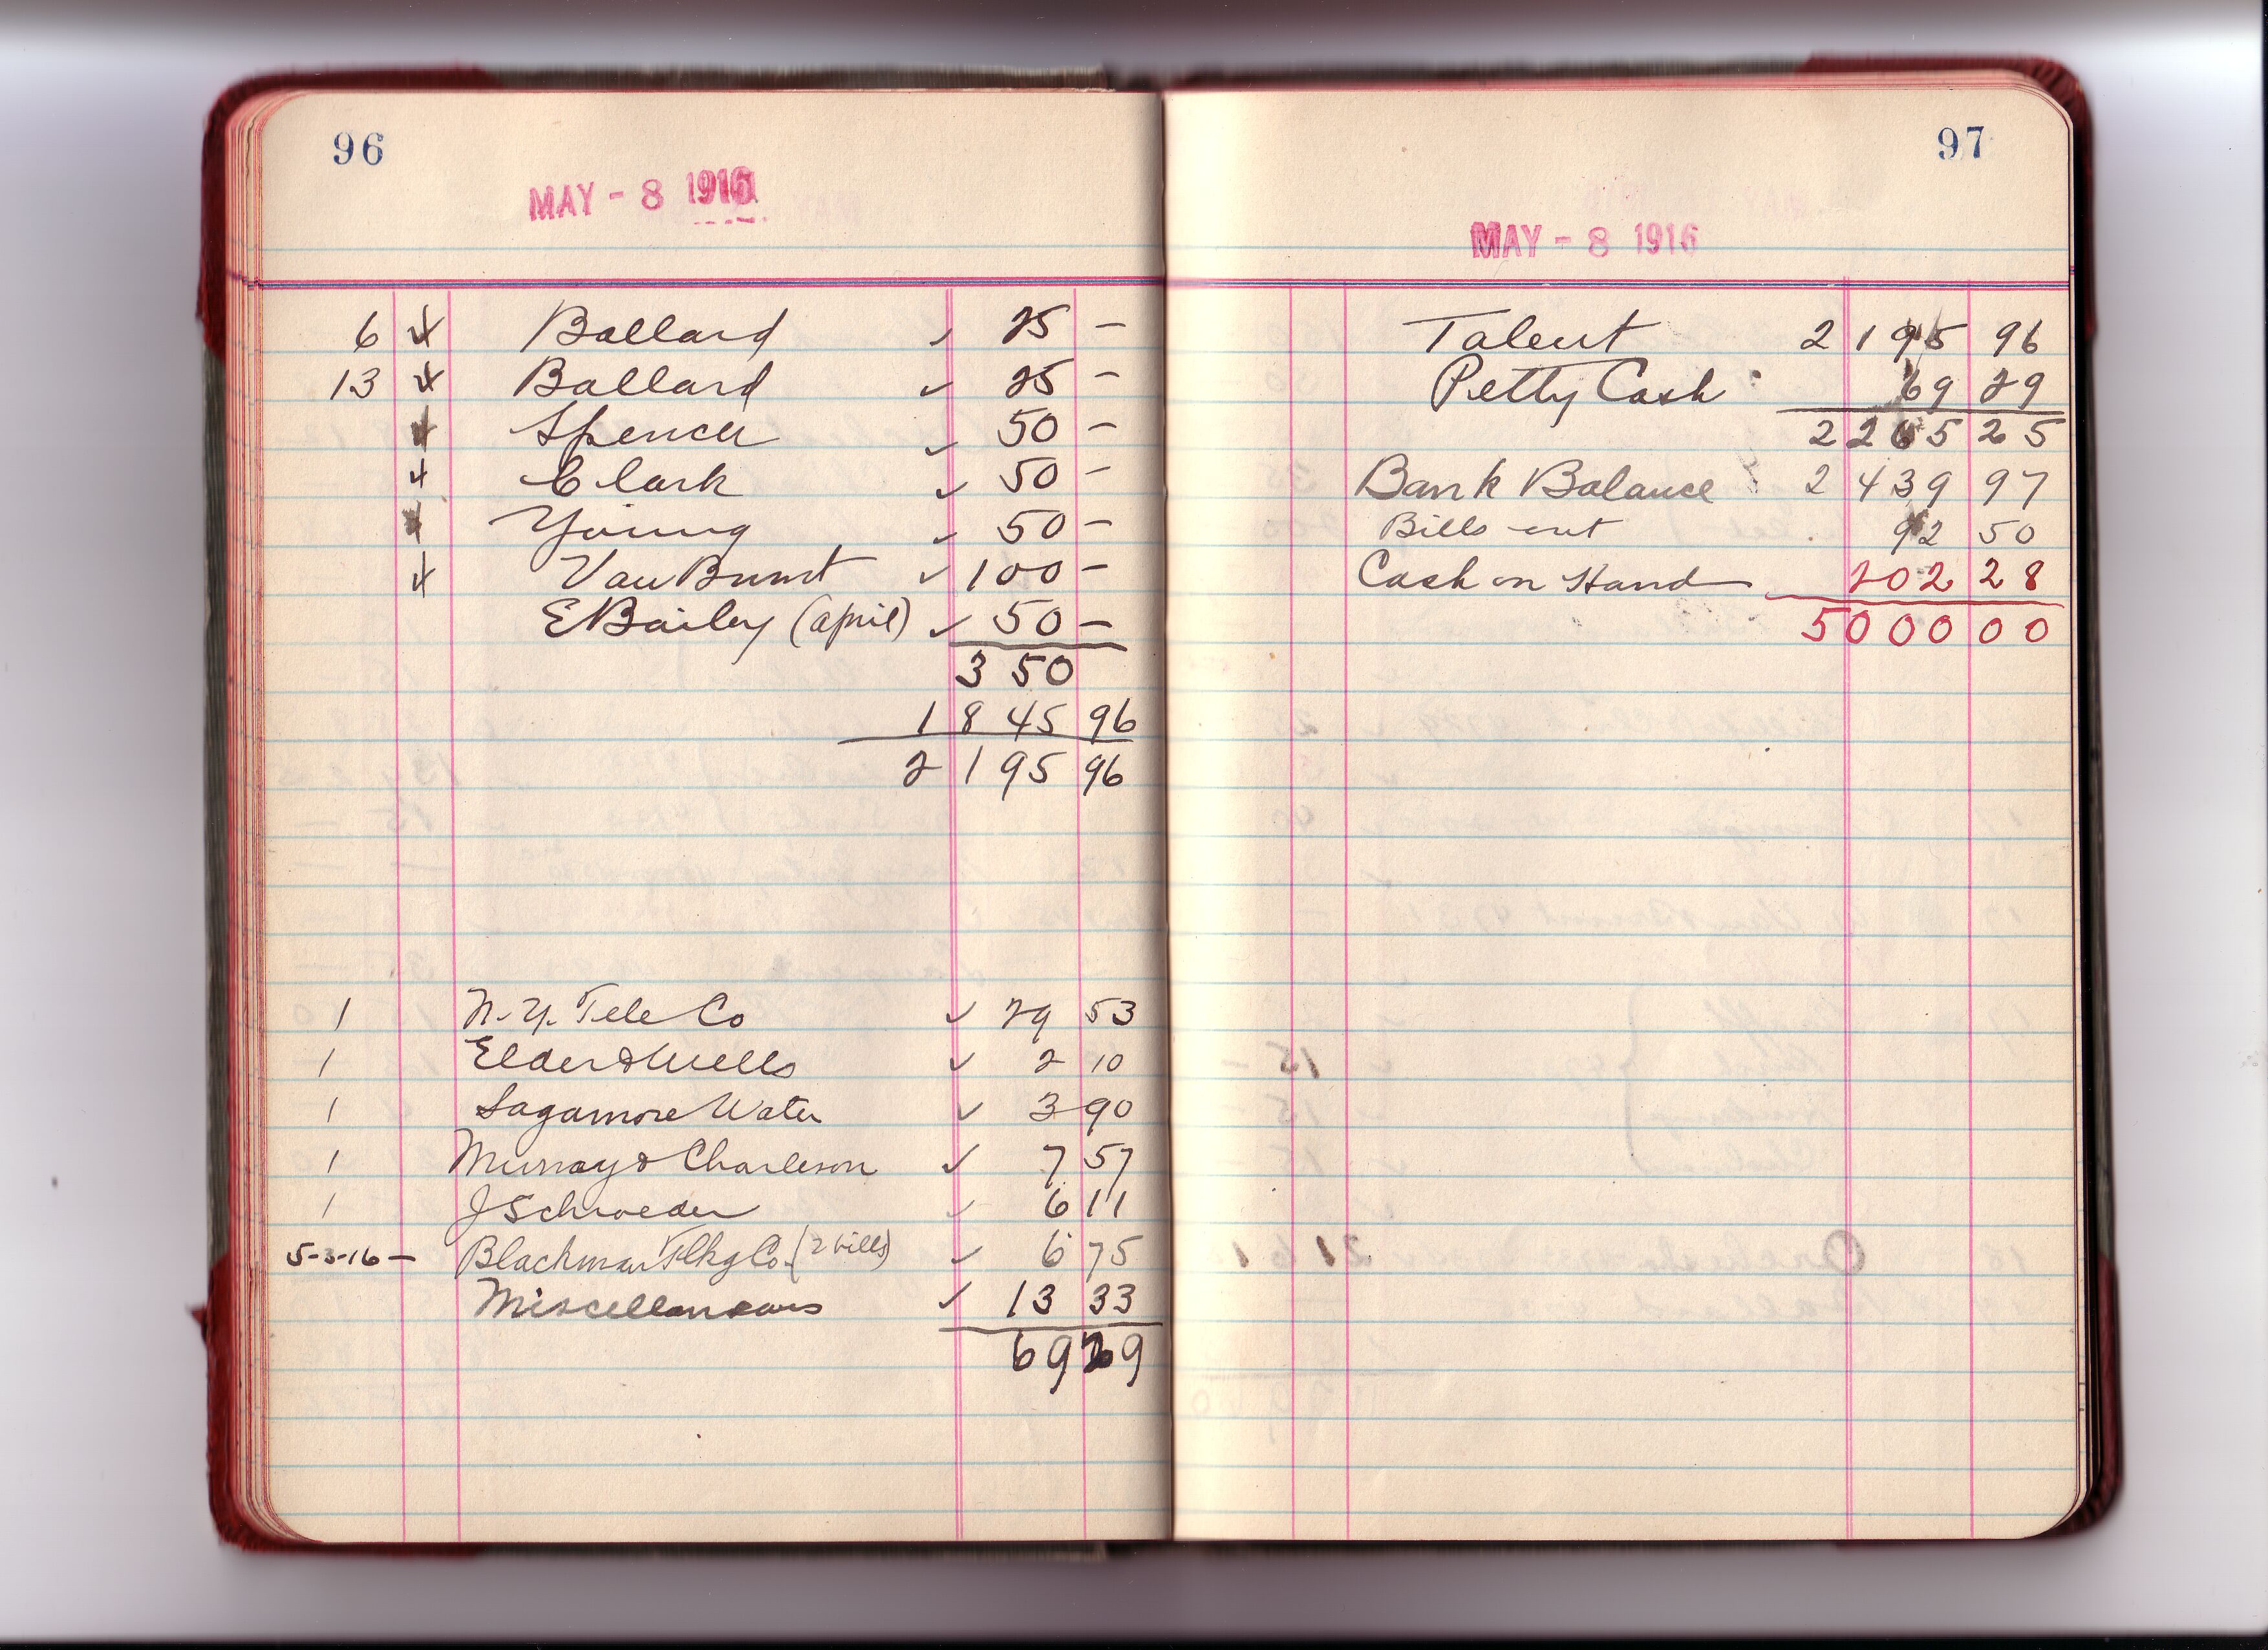 96
MAY - 8 1916
6 Ballard ✓ 25 –
13 Ballard ✓ 25 –
Spencer ✓ 50 –
Clark ✓ 50 –
Young ✓ 50 –
Van Brunt ✓ 100 –
E Bailey (april) ✓ 50 –
3 50
1 8 45 96
2 1 95 96
1 N.Y. Tele Co ✓ 29 53
1 Elder & Wells ✓ 2 10
1 Sagamore Water ✓ 3 90
1 Murray & Charleson ✓ 7 57
1 J Schroeder ✓ 6 11
5-3-16 – Blackman Co. (2 bills) ✓ 6 75
Miscellaneous ✓ 13 33
69 29
97
MAY - 8 1916
Talent 2 195 96
Petty Cash 69 29
2 265 25
Bank Balance 2 439 97
Bills out 92 50
Cash on Hand 202 28
5000 00